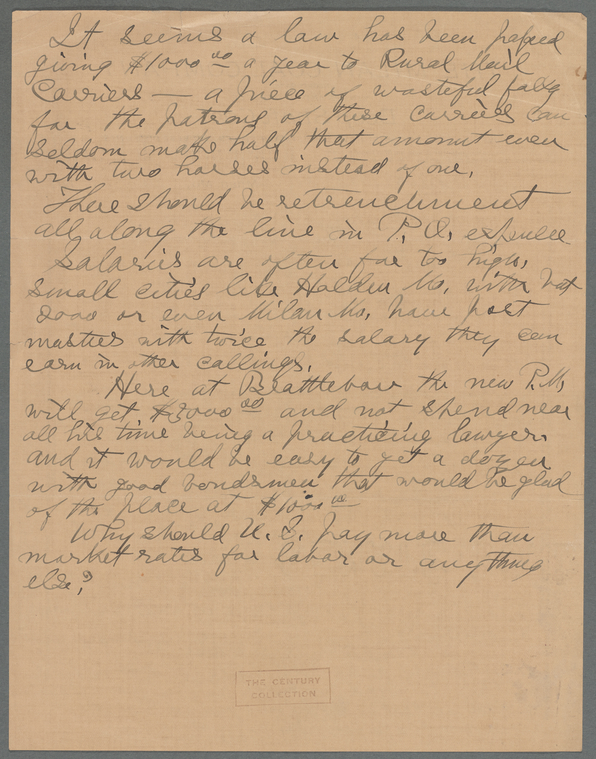 It seems a law has been passed
giving $1000 00 a year to Rural Mail
Carriers — a piece of wasteful folly
for the patrons of these carriers can
seldom make half that amount even
with two horses instead of one.
There should be retrenchment
all along the line in P. O. expense
Salaries are often far too high,
small cities like Holden Mo. with but
2000 or even Milan Mo. have post
masters with twice the salary they can
earn in other callings.
Here at Brattleboro the new P.M.
will get $3000 00 and not spend near
all his time being a practicing lawyer
and it would be easy to get a dozen
with good bondsmen that would be glad
of the place at $1000 00
Why should U. S. pay more than
market rates for labor or anything
else?
THE CENTURY
COLLECTION